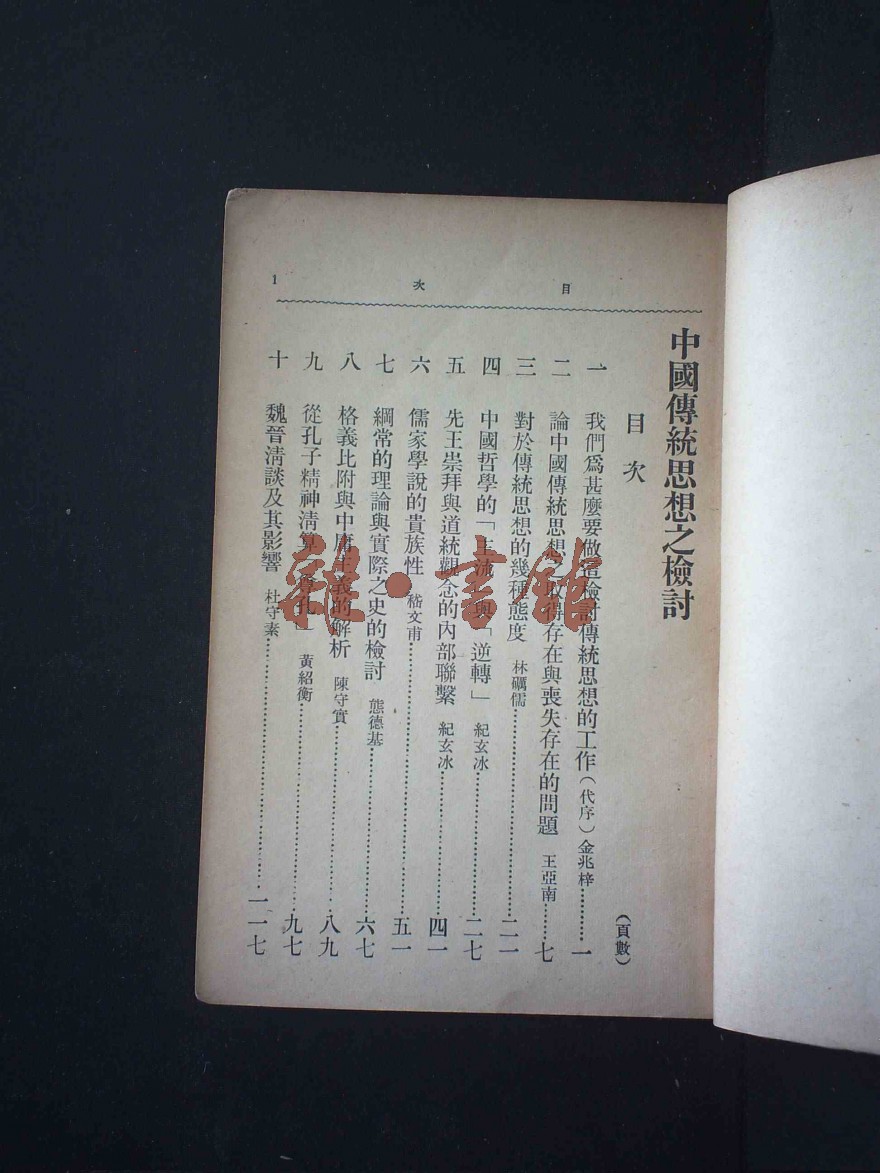 中國傳統思想之檢討
目次
(頁數)
一 我們爲甚麼要做這檢討傳統思想的工作(代序)金兆梓………一
二 論中國傳統思想之取得存在與喪失存在的問題 王亞南………七
三 對於傳統思想的幾種態度 林礪儒………二一
四 中國哲學的「主流」與「逆轉」 紀玄冰………二七
五 先王崇拜與道統觀念的內部聯繫 紀玄冰………四一
六 儒家學說的貴族性 嵇文甫………五一
七 綱常的理論與實際之史的檢討 熊德基………六七
八 格義比附與中庸主義的解析 陳守實………八九
九 從孔子精神清算「尊孔」 黃紹衡………九七
十 魏晉清談及其影響 杜守素………一一七
目次 1
雜·書館